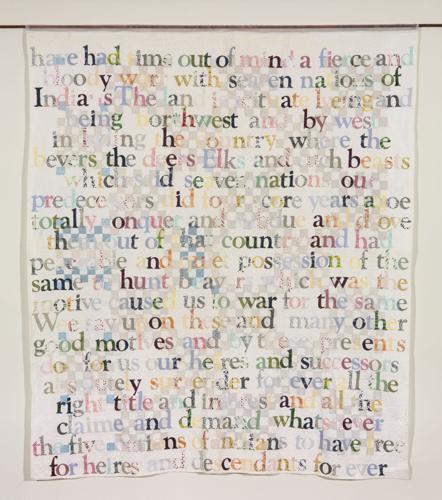 have had time out of mind a fierce and
bloody warr with seaven nations of
Indians The land is scituate lyeing and
being northwest and by west
the country where the
bevers the deers Elks and such beasts
which said seaven nations our
predecessors did four score years agoe
totally conquer and subdue and drove
them out of that country and had
peaceable and quiet possession of the
same to hunt beavers which was the
motive caused us to war for the same
We say upon these and many other
good motives and by these presents
do for us our heires and successors
absolutely surrender for ever all the
right title and interest and all the
claime and demand whatsoever
the five nations of indians to have free
for heires and descendants for ever